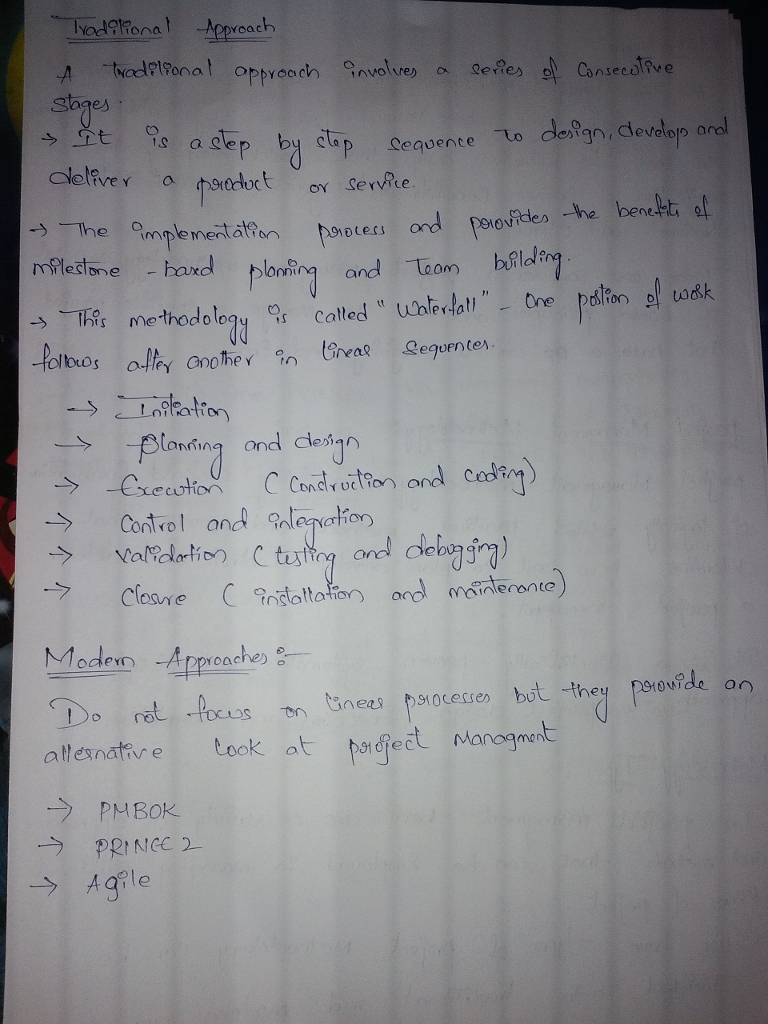 Traditional Approach
A traditional approach involves a series of Consecutive
stages.
→ It is a step by step sequence to design, develop and
deliver a product or service.
→ The implementation process and provides the benefits of
milestone - based planning and Team building.
→ This methodology is called "Waterfall" - One postion of work
follows after another in linear sequences.
→ Initiation
→ Planning and design
→ Execution ( Construction and coding)
→ Control and integration
→ Validation ( testing and debugging)
→ Closure ( installation and maintenance)
Modern Approaches :-
Do not focus on linear processes but they provide an
alternative look at project Managment
→ PMBOK
→ PRINCE 2
→ Agile